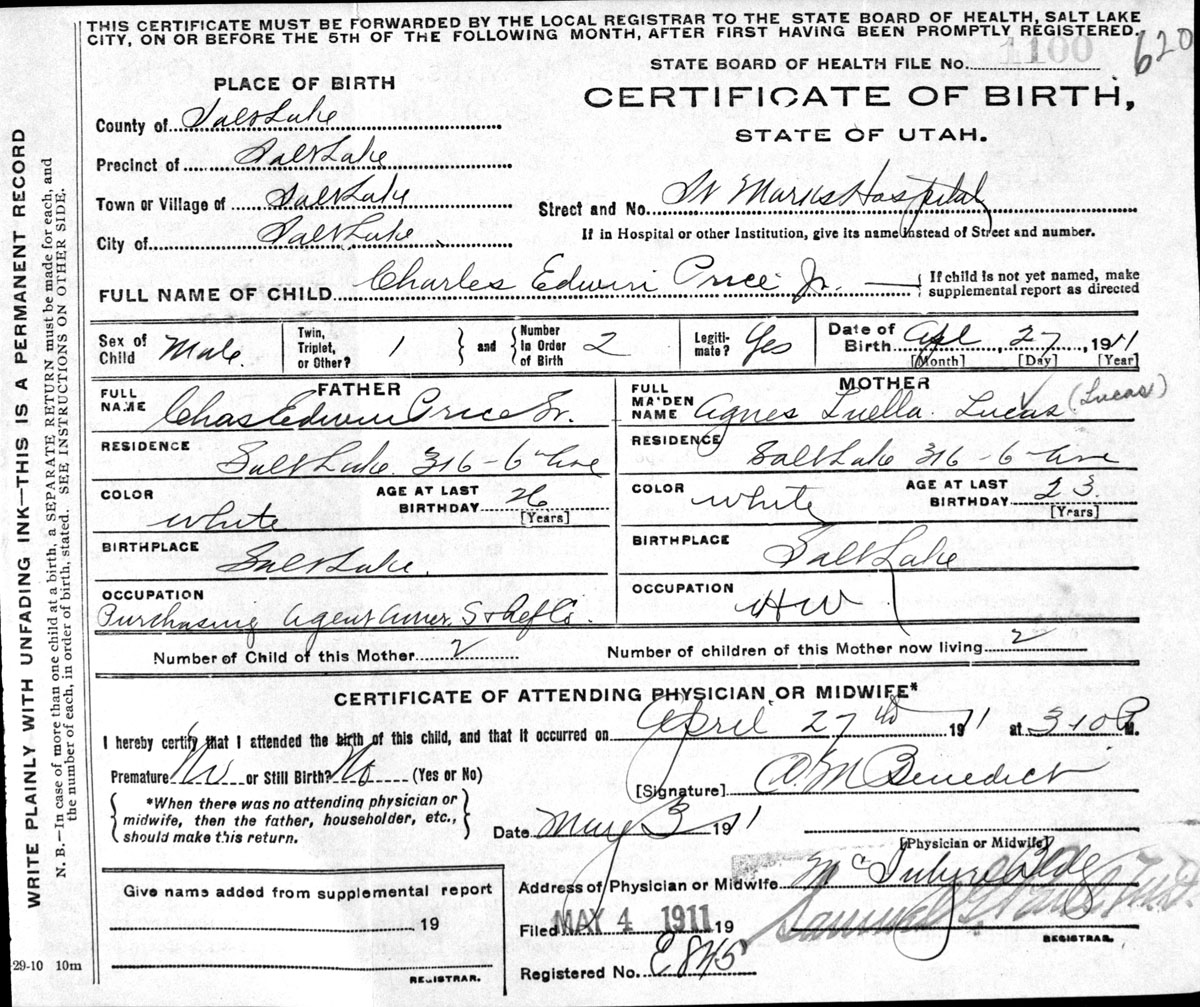 THIS CERTIFICATE MUST BE FORWARDED BY THE LOCAL REGISTRAR TO THE STATE BOARD OF HEALTH, SALT LAKE
CITY, ON OR BEFORE THE 5TH OF THE FOLLOWING MONTH, AFTER FIRST HAVING BEEN PROMPTLY REGISTERED.
620
STATE BOARD OF HEALTH FILE No. 1100
CERTIFICATE OF BIRTH,
STATE OF UTAH.
PLACE OF BIRTH
County of Salt Lake
Precinct of Salt Lake
Town or Village of Salt Lake
City of Salt Lake
Street and No. St Marks Hospital
If in Hospital or other Institution, give its name instead of Street and number.
FULL NAME OF CHILD Charles Edwin Price Jr.
If child is not yet named, make
supplemental report as directed
Sex of Child Male
Twin, Triplet, or Other? 1
and Number in Order of Birth 2
Legiti-mate? Yes
Date of Birth Apl 27, 1911
[Month] [Day] [Year]
FATHER
FULL NAME Chas Edwin Price Sr.
RESIDENCE Salt Lake 316 - 6 Ave
COLOR White
AGE AT LAST BIRTHDAY 26
[Years]
BIRTHPLACE Salt Lake.
OCCUPATION
Purchasing Agent Amer. S & Ref Co.
MOTHER
FULL MAIDEN NAME Agnes Luella Lucas (Lucas)
RESIDENCE Salt Lake 316 - 6 Ave
COLOR White
AGE AT LAST BIRTHDAY 23.
[Years]
BIRTHPLACE Salt Lake
OCCUPATION HW
Number of Child of this Mother 2
Number of children of this Mother now living 2
CERTIFICATE OF ATTENDING PHYSICIAN OR MIDWIFE*
I hereby certify that I attended the birth of this child, and that it occurred on April 27th 1911 at 3 10 P M.
Premature No or Still Birth? No (Yes or No)
[Signature] Benedict
*When there was no attending physician or
midwife, then the father, householder, etc.,
should make this return.
Date May 3 1911
[Physician or Midwife]
Address of Physician or Midwife McIntyre Bldg
Give name added from supplemental report
19
REGISTRAR.
Filed MAY 4 1911 19
Samuel G. Paul
REGISTRAR.
Registered No. E845
29-10 10m
WRITE PLAINLY WITH UNFADING INK—THIS IS A PERMANENT RECORD
N. B.—In case of more than one child at a birth, a SEPARATE RETURN must be made for each, and
the number of each, in order of birth, stated. SEE INSTRUCTIONS ON OTHER SIDE.